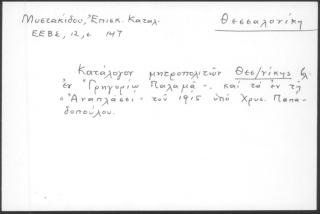 Μυστακίδου, Ἐπισκ. Καταλ.
Θεσσαλονίκη
ΕΕΒΣ, 12, σ 147
Κατάλογον μητροπολιτῶν Θεσ/νίκης βλ.
ἐν "Γρηγορίῳ Παλαμᾷ", καὶ τὸ ἐν τῇ
"Ἀναπλάσει" τοῦ 1915 ὑπὸ Χρυσ. Παπα-
δοπούλου.